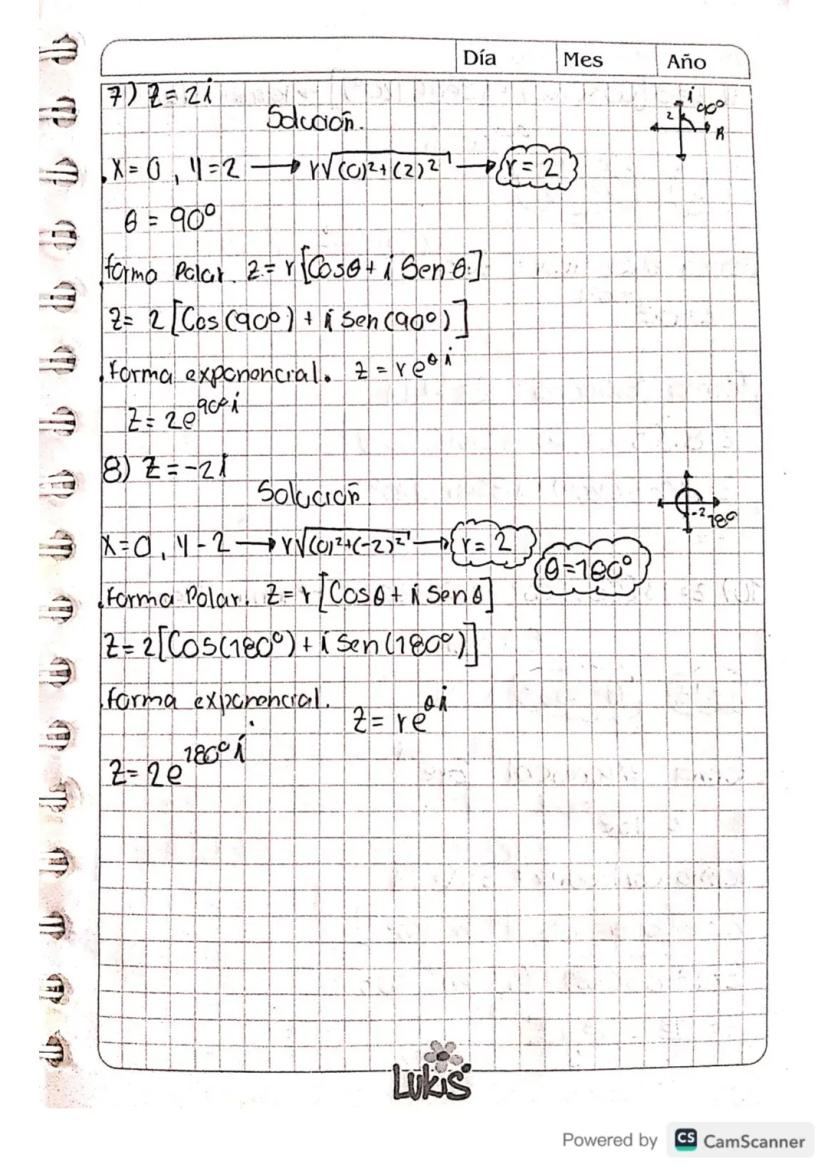 Día Mes Año
7) Z=2i
Solución.
i 90°
2
R
.X=0, y=2 → r√(0)²+(2)² → r=2
θ = 90°
.forma Polar. Z=r[Cosθ+i Senθ]
Z= 2[Cos(90°)+i Sen(90°)]
.forma exponencial. Z=re^θi
Z=2e^90°i
8) Z=-2i
Solución.
-2 180
X=0, y-2 → r√(0)²+(-2)² → r=2 θ=180°
.forma Polar. Z=r[Cosθ+i Senθ]
Z=2[Cos(180°)+i Sen(180°)]
.forma exponencial. Z=re^θi
Z=2e^180°i
LUKIS
Powered by CS CamScanner